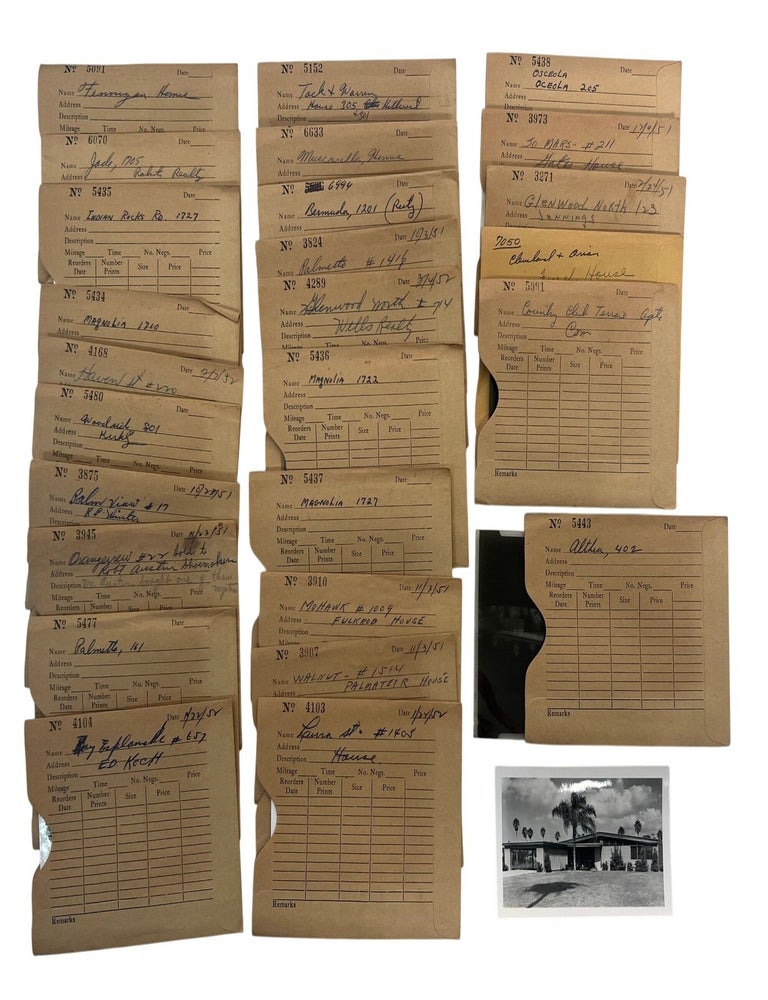 Nº 5091 Date
Name Fennigan Home
Address
Description
Mileage Time No. Negs. Price
Nº 6070 Date
Name Jade, 1705
Address Realty
Nº 5435 Date
Name INDIAN ROCKS RD. 1727
Address
Description
Mileage Time No. Negs. Price
Reorders Date Number Prints Size Price
Nº 5434
Name MAGNOLIA 1760
Address
Description
Mileage
Nº 4168
Name Haven St #220 2/2/52
Nº 5480
Name Woodrich 201
Address
Description
No. Negs.
Nº 3875
Name Palm View #17 10/23/51
Address R.P. Winter
Nº 3945
Name Orangeview #22 sold to
Address Robt Austin
Description
Mileage Time No. Negs. Price
Reorders Number Size Price
Nº 5477 Date
Name Palmetto, 161
Address
Description
Mileage Time No. Negs. Price
Reorders Date Number Prints Size Price
Nº 4104 Date 1/22/52
Name Bay Esplanade #657
Address ED KOCH
Description
Mileage Time No. Negs. Price
Reorders Date Number Prints Size Price
Remarks
Nº 5152 Date
Name Tack & Warren
Address House 305
Description 301
Nº 6633
Name Muscarella, Home
Address
Description
Nº 6994
Name Bermuda, 1201
Address
Description
Nº 3824 10/3/51
Name Palmetto #1416
Nº 4289 3/4/52
Name Glenwood North # 714
Address Wells Realty
Description
Mileage Time No. Negs. Price
Nº 5436 Date
Name MAGNOLIA 1722
Address
Description
Mileage Time No. Negs. Price
Reorders Date Number Prints Size Price
Nº 5437 Date
Name MAGNOLIA 1727
Address
Description
Mileage Time No. Negs. Price
Nº 3910 Date 11/3/51
Name MOHAWK #1009
Address FULKROD HOUSE
Description
Nº 3907 Date 11/3/51
Name WALNUT - #1514
Address PALMATEIR HOUSE
Description
Nº 4103 Date 1/22/52
Name Laura St. #1403
Address House.
Description
Mileage Time No. Negs. Price
Reorders Date Number Prints Size Price
Remarks
Nº 5438 Date
OSCEOLA
Name OCEOLA 205
Address
Description
Nº 3973 Date
Name JO MARS - #211
Address Gates House
Nº 3271 Date 2/24/51
Name GLENWOOD NORTH 123
Address JENNINGS
7050
Cleveland & Orion
House
Nº 5991 Date
Name Country Club Terrace Apts
Address
Description Com
Mileage Time No. Negs. Price
Reorders Date Number Prints Size Price
Remarks
Nº 5443 Date
Name Althea, 402
Address
Description
Mileage Time No. Negs. Price
Reorders Date Number Prints Size Price
Remarks